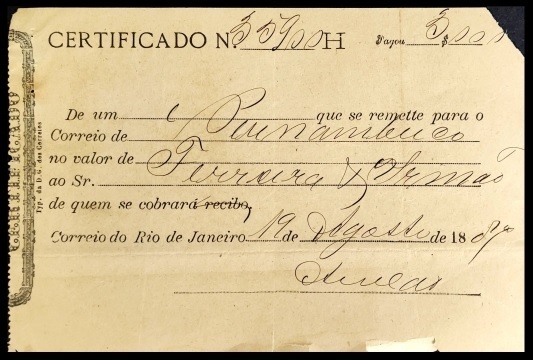 CERTIFICADO N. H Pagou $
De um que se remette para o
Correio de Pernambuco
no valor de
ao Sr. Ferreira & Irmão
de quem se cobrará recibo,
Correio do Rio de Janeiro, 19 de Agosto de 18
Typ. da D. G. dos Correios